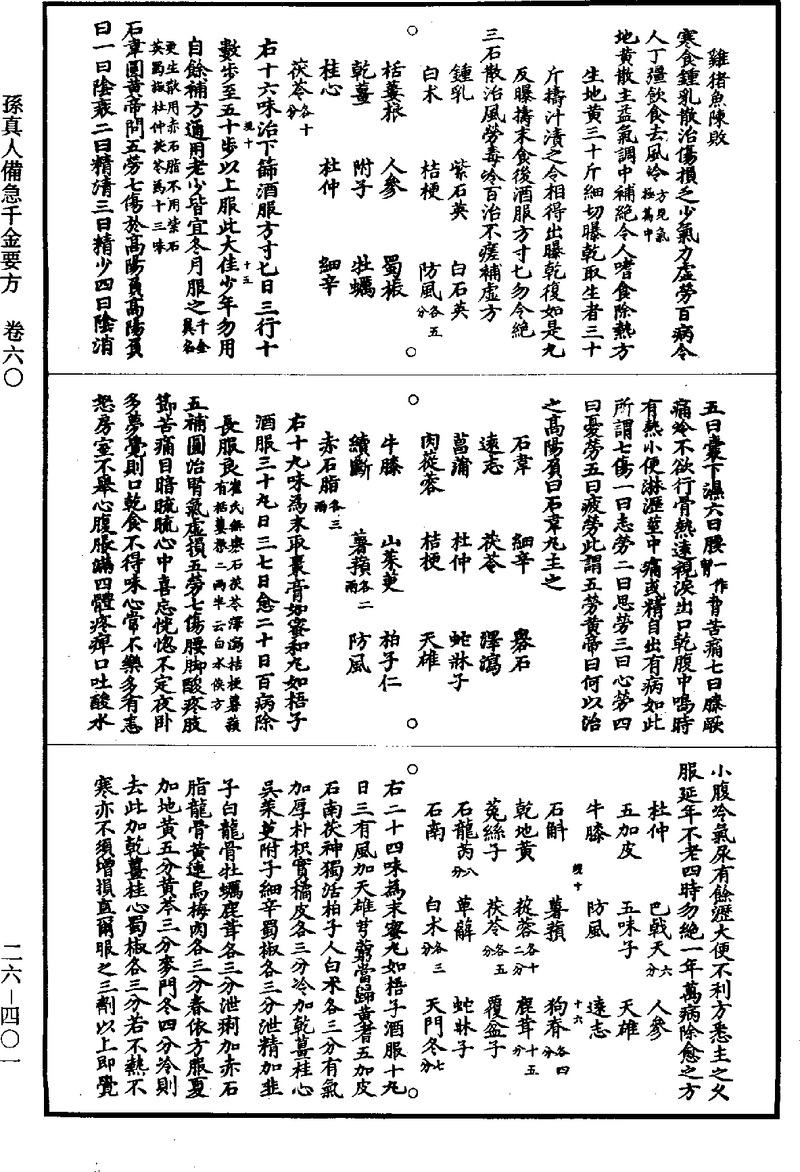 雞猪魚陳敗
寒食鍾乳散治傷損乏少氣力虛勞百病令
人丁彊飲食去風冷方見氣極篇中
地黃散主益氣調中補絕令人嗜食除熱方
生地黃三十斤細切曝乾取生者三十
斤擣汁漬之令相得出曝乾復如是九
反曝擣末食後酒服方寸匕勿令絕
三石散治風勞毒冷百治不瘥補虛方
鍾乳 紫石英 白石英
白术 桔梗 防風各五分
栝蔞根 人參 蜀椒
乾薑 附子 牡蠣
桂心 杜仲 細辛
茯苓各十分
右十六味治下篩酒服方寸匕日三行十
數步至五十步以上服此大佳少年勿用
經十 十五
自餘補方通用老少皆宜冬月服之千金翼名
更生散用赤石脂不用紫石英蜀椒杜仲茯苓為十三味
石韋圓黃帝問五勞七傷於高陽負高陽負
曰一曰陰衰二曰精清三曰精少四曰陰消
五曰囊下濕六曰腰一作胷脅苦痛七曰膝厥
痛冷不欲行骨熱遠視淚出口乾腹中鳴時
有熱小便淋瀝莖中痛或精自出有病如此
所謂七傷一曰志勞二曰思勞三曰心勞四
曰憂勞五曰疲勞此謂五勞黃帝曰何以治
之高陽負曰石韋丸主之
石韋 細辛 礜石
遠志 茯苓 澤瀉
菖蒲 杜仲 蛇牀子
肉蓯蓉 桔梗 天雄
牛膝 山茱萸 柏子仁
續斷 薯蕷各二兩 防風
赤石脂各三兩
右十九味為末取棗膏如蜜和丸如梧子
酒服三十丸日三七日愈二十日百病除
長服良崔氏無礜石茯苓澤瀉桔梗薯蕷有栝蔞根二兩半云白水侯方
五補圓治腎氣虛損五勞七傷腰脚酸疼肢
節苦痛目暗䀮䀮心中喜忘恍惚不定夜卧
多夢覺則口乾食不得味心常不樂多有恚
怒房室不舉心腹脹滿四體疼痹口吐酸水
小腹冷氣尿有餘瀝大便不利方悉主之久
服延年不老四時勿絕一年萬病除愈之方
杜仲 巴戟天六分 人參
五加皮 五味子 天雄
牛膝 防風 遠志
經十 十六
石斛 薯蕷 狗脊各四分
乾地黃 蓯蓉各十二分 鹿茸十五分
菟絲子 茯苓各五分 覆盆子
石龍芮八分 萆薢 蛇牀子
石南 白术各三分 天門冬七分
右二十四味為末蜜丸如梧子酒服十丸
日三有風加天雄芎藭當歸黃耆五加皮
石南茯神獨活柏子人白术各三分有氣
加厚朴枳實橘皮各三分冷加乾薑桂心
吳茱萸附子細辛蜀椒各三分泄精加韭
子白龍骨牡蠣鹿茸各三分泄痢加赤石
脂龍骨黃連烏梅肉各三分春依方服夏
加地黃五分黃芩三分麥門冬四分冷則
去此加乾薑桂心蜀椒各三分若不熱不
寒亦不須增損直爾服之三劑以上即覺
孫真人備急千金要方 卷六〇
二六－四〇一